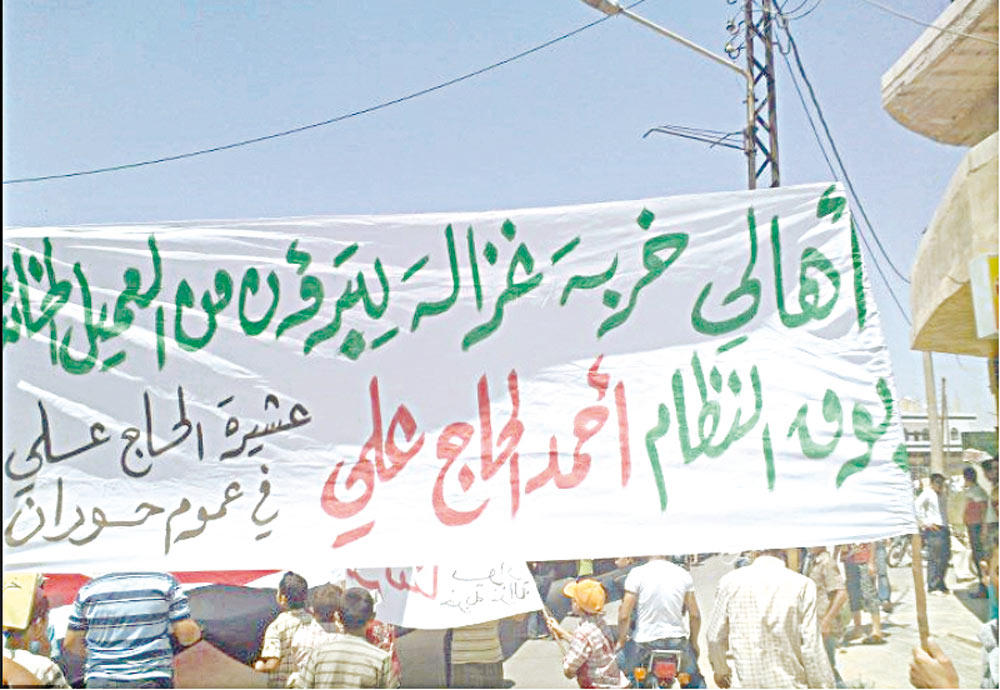 أهالي خربة غزالة يتبرؤن من العميل الخائن
بوق النظام أحمد الحاج علي
عشيرة الحاج علي
في عموم حوران